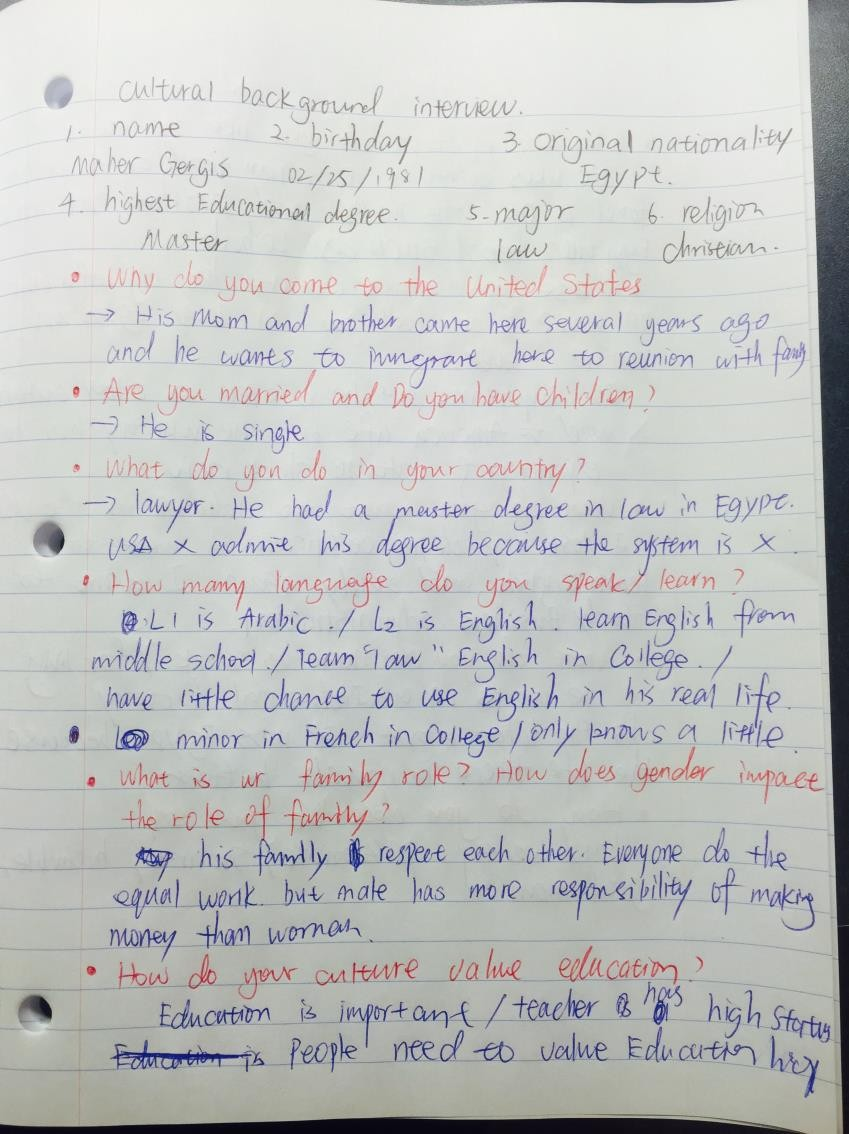 cultural background interview.
1. name 2. birthday 3. original nationality
Maher Gergis 02/25/1981 Egypt.
4. highest Educational degree. 5. major 6. religion
Master law christian.
• Why do you come to the United States
→ His Mom and brother came here several years ago
and he wants to inmgrant here to reunion with family
• Are you married and Do you have children?
→ He is single
• What do you do in your country?
→ lawyer. He had a master degree in law in Egypt.
USA × admit his degree because the system is ×.
• How many language do you speak/learn?
L1 is Arabic ./ L2 is English. learn English from
middle school ./ learn "law" English in College ./
have little chance to use English in his real life.
• minor in French in College / only knows a little.
• What is ur family role? How does gender impact
the role of family?
his family respect each other. Everyone do the
equal work. but male has more responsibility of making
money than woman.
• How do your culture value education?
Education is important / teacher has high Startus
Education is People need to value Education